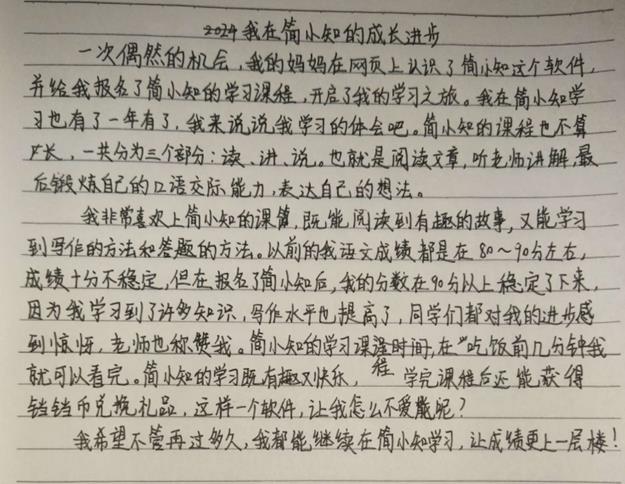 2024我在简小知的成长进步
一次偶然的机会,我的妈妈在网页上认识了简小知这个软件,
并给我报名了简小知的学习课程,开启了我的学习之旅。我在简小知学
习也有了一年有了,我来说说我学习的体会吧。简小知的课程也不算
长,一共分为三个部分:读、讲、说。也就是阅读文章,听老师讲解,最
后锻炼自己的口语交际能力,表达自己的想法。
我非常喜欢上简小知的课,既能阅读到有趣的故事,又能学习
到写作的方法和答题的方法。以前的我语文成绩都是在80~90分左右,
成绩十分不稳定,但在报名了简小知后,我的分数在90分以上稳定了下来,
因为我学习到了许多知识,写作水平也提高了,同学们都对我的进步感
到惊讶,老师也称赞我。简小知的学习课程时间,在"吃饭前几分钟我
就可以看完。简小知的学习既有趣又快乐,学完课程后还能获得
铛铛币兑换礼品,这样一个软件,让我怎么不爱呢?
我希望不管再过多久,我都能继续在简小知学习,让成绩更上一层楼!